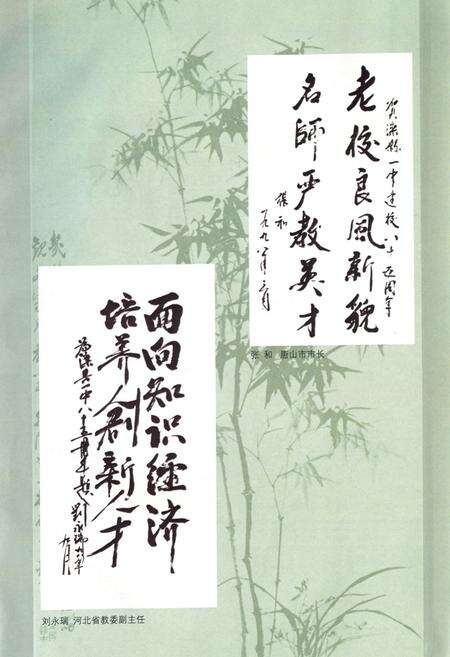 贺滦县一中建校八十五周年
老校良风新貌
名师严教英才
张和
一九九八年三月
张 和 唐山市市长
面向知识经济
培养创新人才
为滦县一中八十五周年题
刘永瑞
刘永瑞 河北省教委副主任